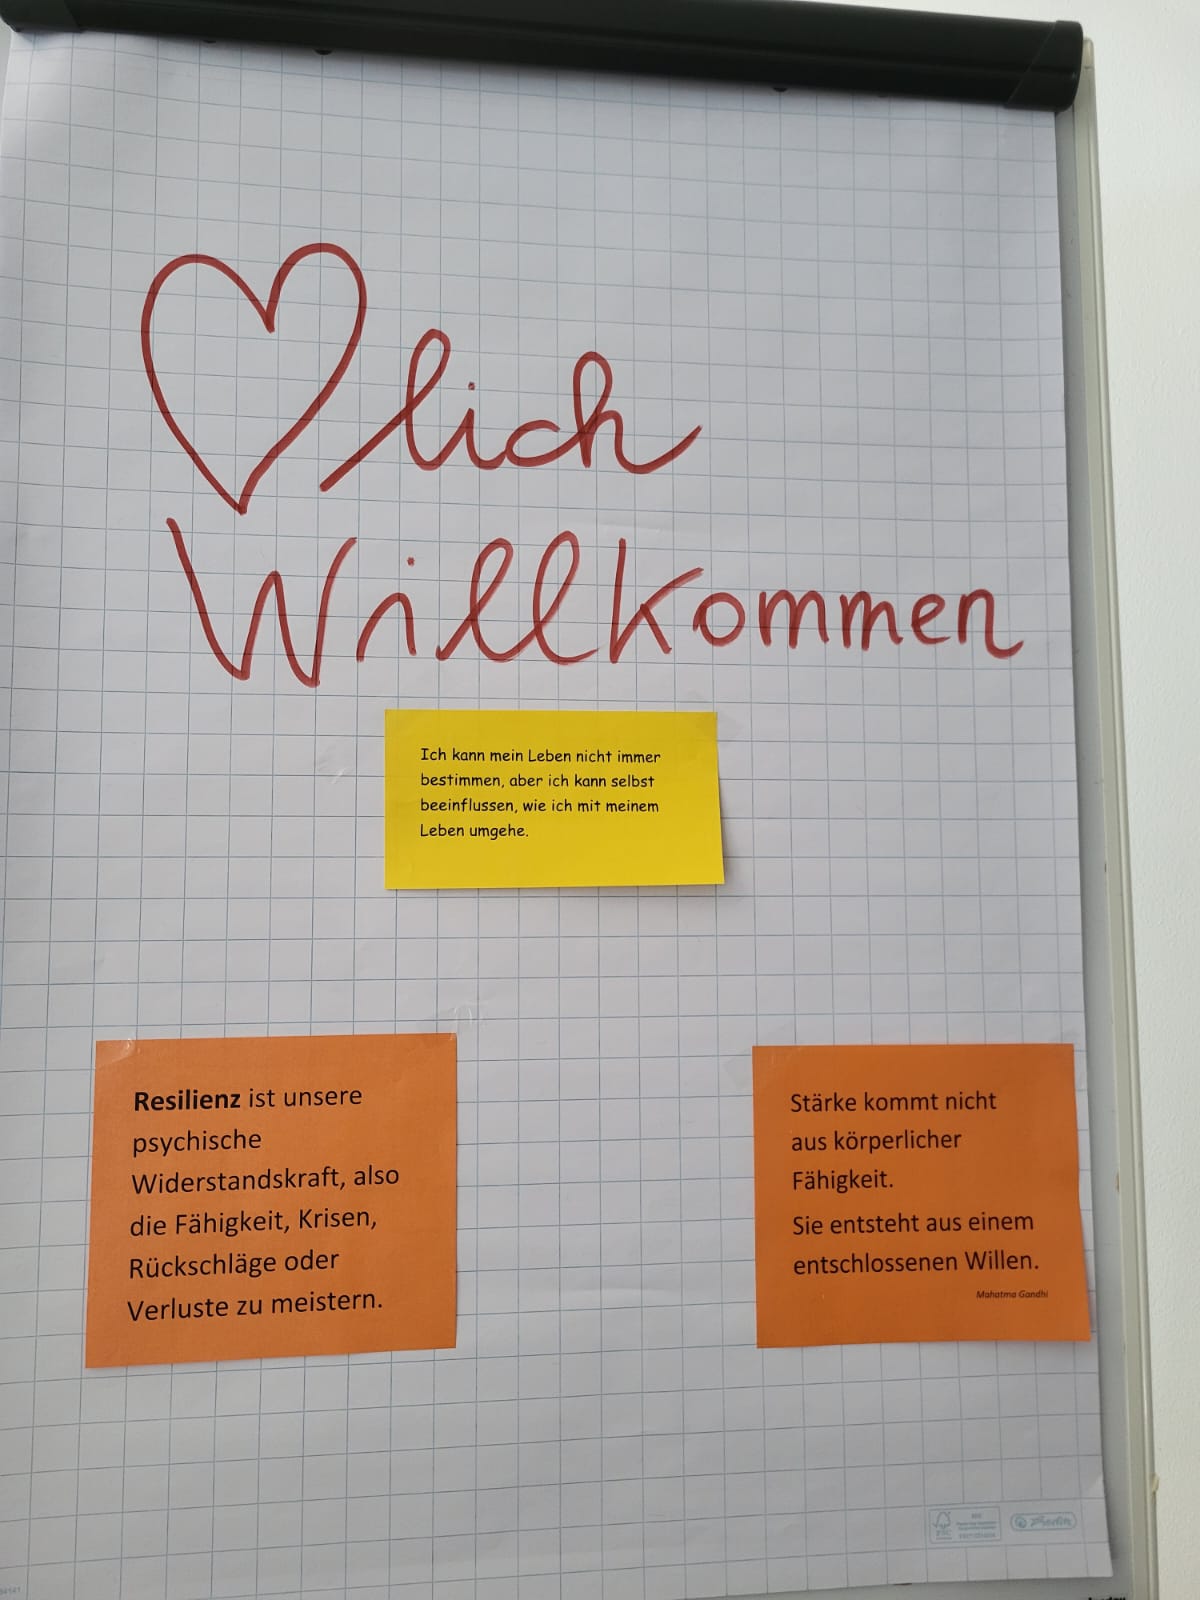 ♡lich
Willkommen
Ich kann mein Leben nicht immer
bestimmen, aber ich kann selbst
beeinflussen, wie ich mit meinem
Leben umgehe.
Resilienz ist unsere
psychische
Widerstandskraft, also
die Fähigkeit, Krisen,
Rückschläge oder
Verluste zu meistern.
Stärke kommt nicht
aus körperlicher
Fähigkeit.
Sie entsteht aus einem
entschlossenen Willen.
Mahatma Gandhi
FSC